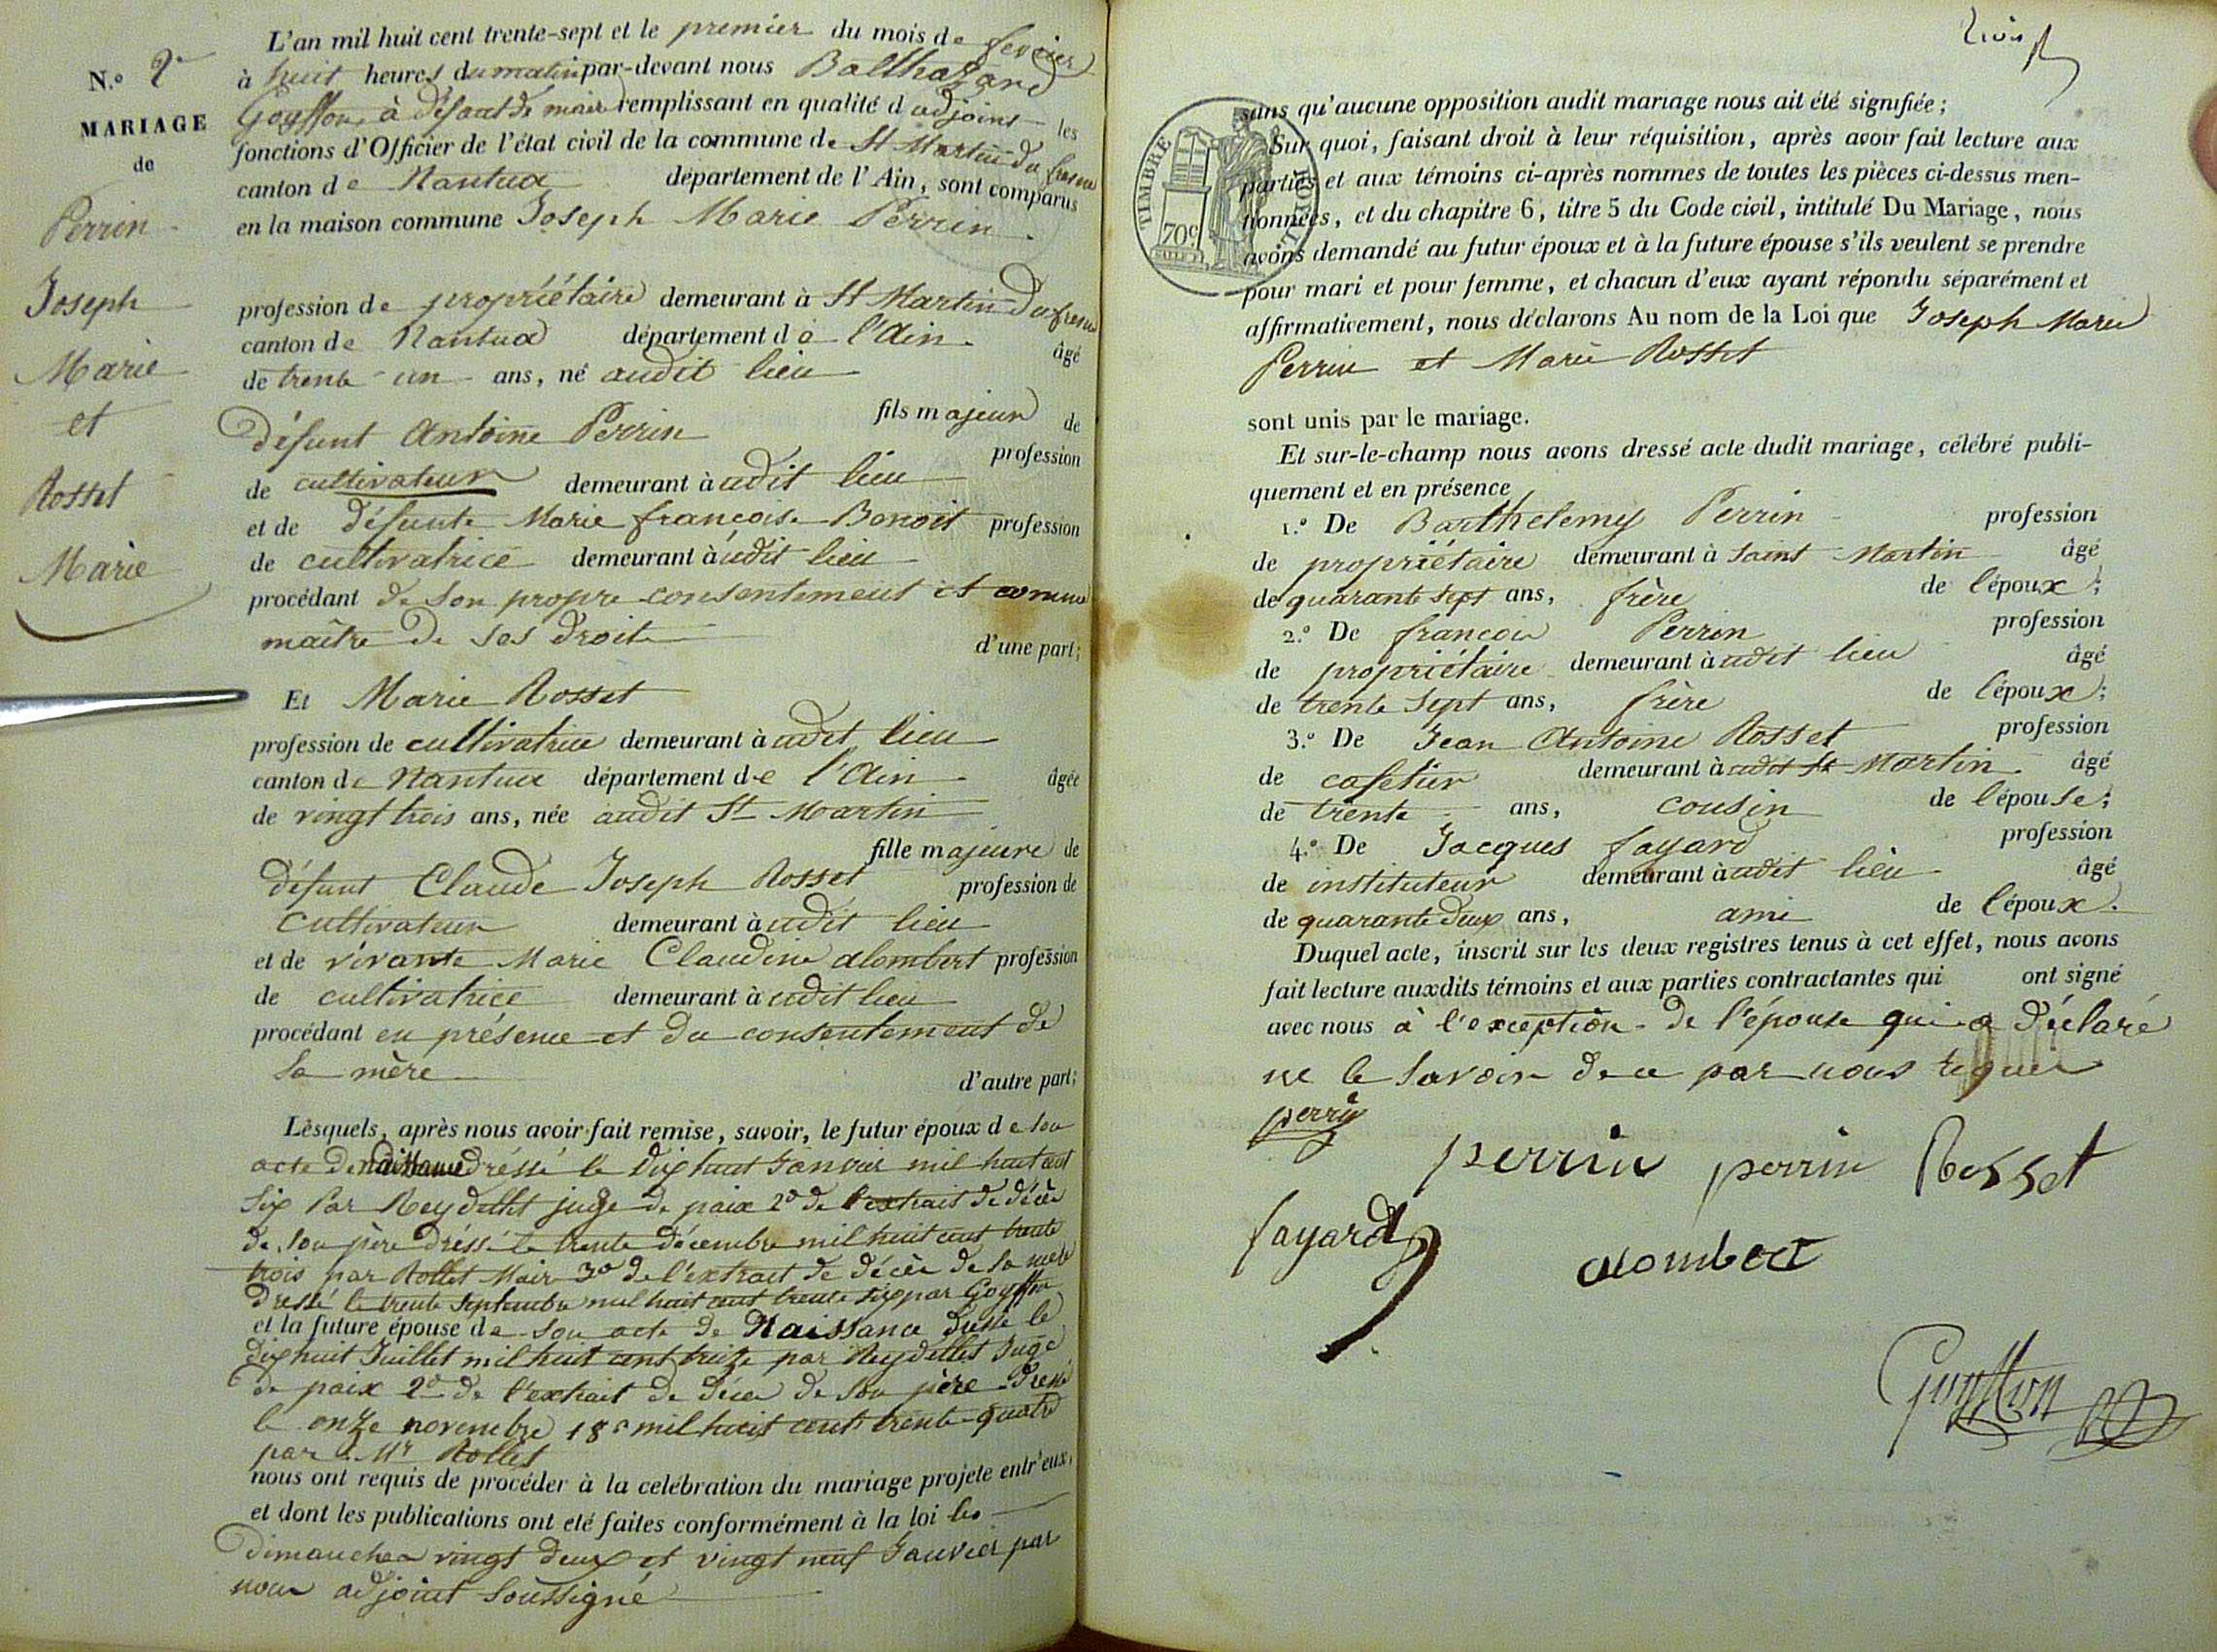 N.o 2
MARIAGE
de
Perrin
Joseph
Marie
et
Rosset
Marie
L'an mil huit cent trente-sept et le premier du mois de fevrier
à huit heures du matin par-devant nous Balthazard
Goyffon, à défaut de maire remplissant en qualité d'adjoint les
fonctions d'Officier de l'état civil de la commune de St Martin du fresne
canton de Nantua département de l'Ain, sont comparus
en la maison commune Joseph Marie Perrin
profession de propriétaire demeurant à St Martin du fresne
canton de Nantua département de l'Ain. âgé
de trente un ans, né audit lieu
fils majeur de
défunt Antoine Perrin profession
de cultivateur demeurant à udit lieu
et de défunte Marie françoise Benoit profession
de cultivatrice demeurant à udit lieu
procédant de son propre consentement et comme
maître de ses droits d'une part;
Et Marie Rosset
profession de cultivatrice demeurant à udit lieu
canton de Nantua département de l'Ain âgée
de vingt trois ans, née audit St Martin
fille majeure de
défunt Claude Joseph Rosset profession de
cultivateur demeurant à udit lieu
et de vivante Marie Claudine alombert profession
de cultivatrice demeurant à udit lieu
procédant en présence et du consentement de
sa mère d'autre part;
Lesquels, après nous avoir fait remise, savoir, le futur époux de son
acte de naissance dréssé le dix huit Janvier mil huit cent
six par Reydellet juge de paix 2o de l'extrait de décès
de son père dréssé le trente décembre mil huit cent trente
trois par Rollet Maire 3o de l'extrait de décès de sa mère
dressé le trente septembre mil huit cent trente six par Goyffon
et la future épouse de son acte de Naissance dressé le
dix huit Juillet mil huit cent treize par Reydellet Juge
de paix 2o de l'extrait de décès de son père dressé
le onze novembre 18c mil huit cent trente quatre
par Mr Rollet
nous ont requis de procéder à la celébration du mariage projete entr'eux,
et dont les publications ont eté faites conformément à la loi les
dimanches vingt deux et vingt neuf Janvier par
nous adjoint soussigné
trois
TIMBRE
ROYAL
70c
sans qu'aucune opposition audit mariage nous ait été signifiée;
Sur quoi, faisant droit à leur réquisition, après avoir fait lecture aux
parties et aux témoins ci-après nommes de toutes les pièces ci-dessus men-
tionnées, et du chapitre 6, titre 5 du Code civil, intitulé Du Mariage, nous
avons demandé au futur époux et à la future épouse s'ils veulent se prendre
pour mari et pour femme, et chacun d'eux ayant répondu séparément et
affirmativement, nous déclarons Au nom de la Loi que Joseph Marie
Perrin et Marie Rosset
sont unis par le mariage.
Et sur-le-champ nous avons dressé acte dudit mariage, célébré publi-
quement et en présence
1.o De Barthelemy Perrin profession
de propriétaire demeurant à saint Martin âgé
de quarante sept ans, frère de l'époux;
2.o De françois Perrin profession
de propriétaire demeurant à udit lieu âgé
de trente sept ans, frère de l'époux;
3.o De Jean Antoine Rosset profession
de cafetier demeurant à udit St Martin âgé
de trente ans, cousin de l'épouse;
4.o De Jacques fayard profession
de instituteur demeurant à udit lieu âgé
de quarante deux ans, ami de l'époux.
Duquel acte, inscrit sur les deux registres tenus à cet effet, nous avons
fait lecture auxdits témoins et aux parties contractantes qui ont signé
avec nous à l'exception de l'épouse qui a déclaré
ne le savoir de ce par nous requis
perrin
perrin perrin Rosset
fayard
alombert
Goyffon